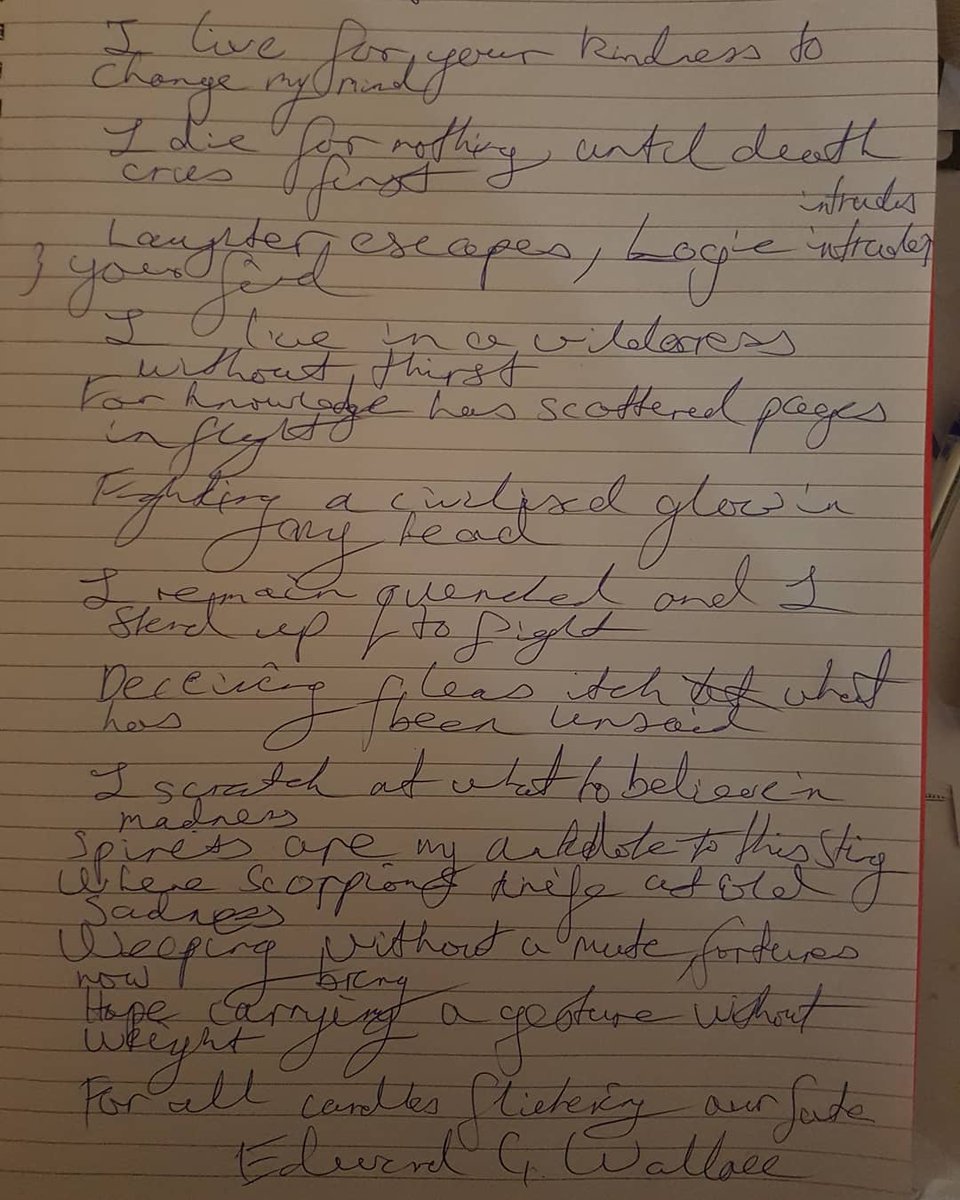 I live for your kindness to
change my mind
I die for nothing, until death
cries first
intrudes
Laughter, escapes, Logic intrudes
your
I live in a wilderness
without, thirst
For knowledge has scattered pages
in flight
Fighting a civilised glow in
my head
I remain quenched and I
Stand up to fight
Deceiving fleas itch what
has been unsaid
I scratch at what to believe in
madness
Spirits are my antidote to this Sting
Where Scorpions knife at old
Sadness
Weeping without a mute, fortunes
now bring
Hope carrying a gesture without
weight
For all candles flickering our fate
Edward G. Wallace